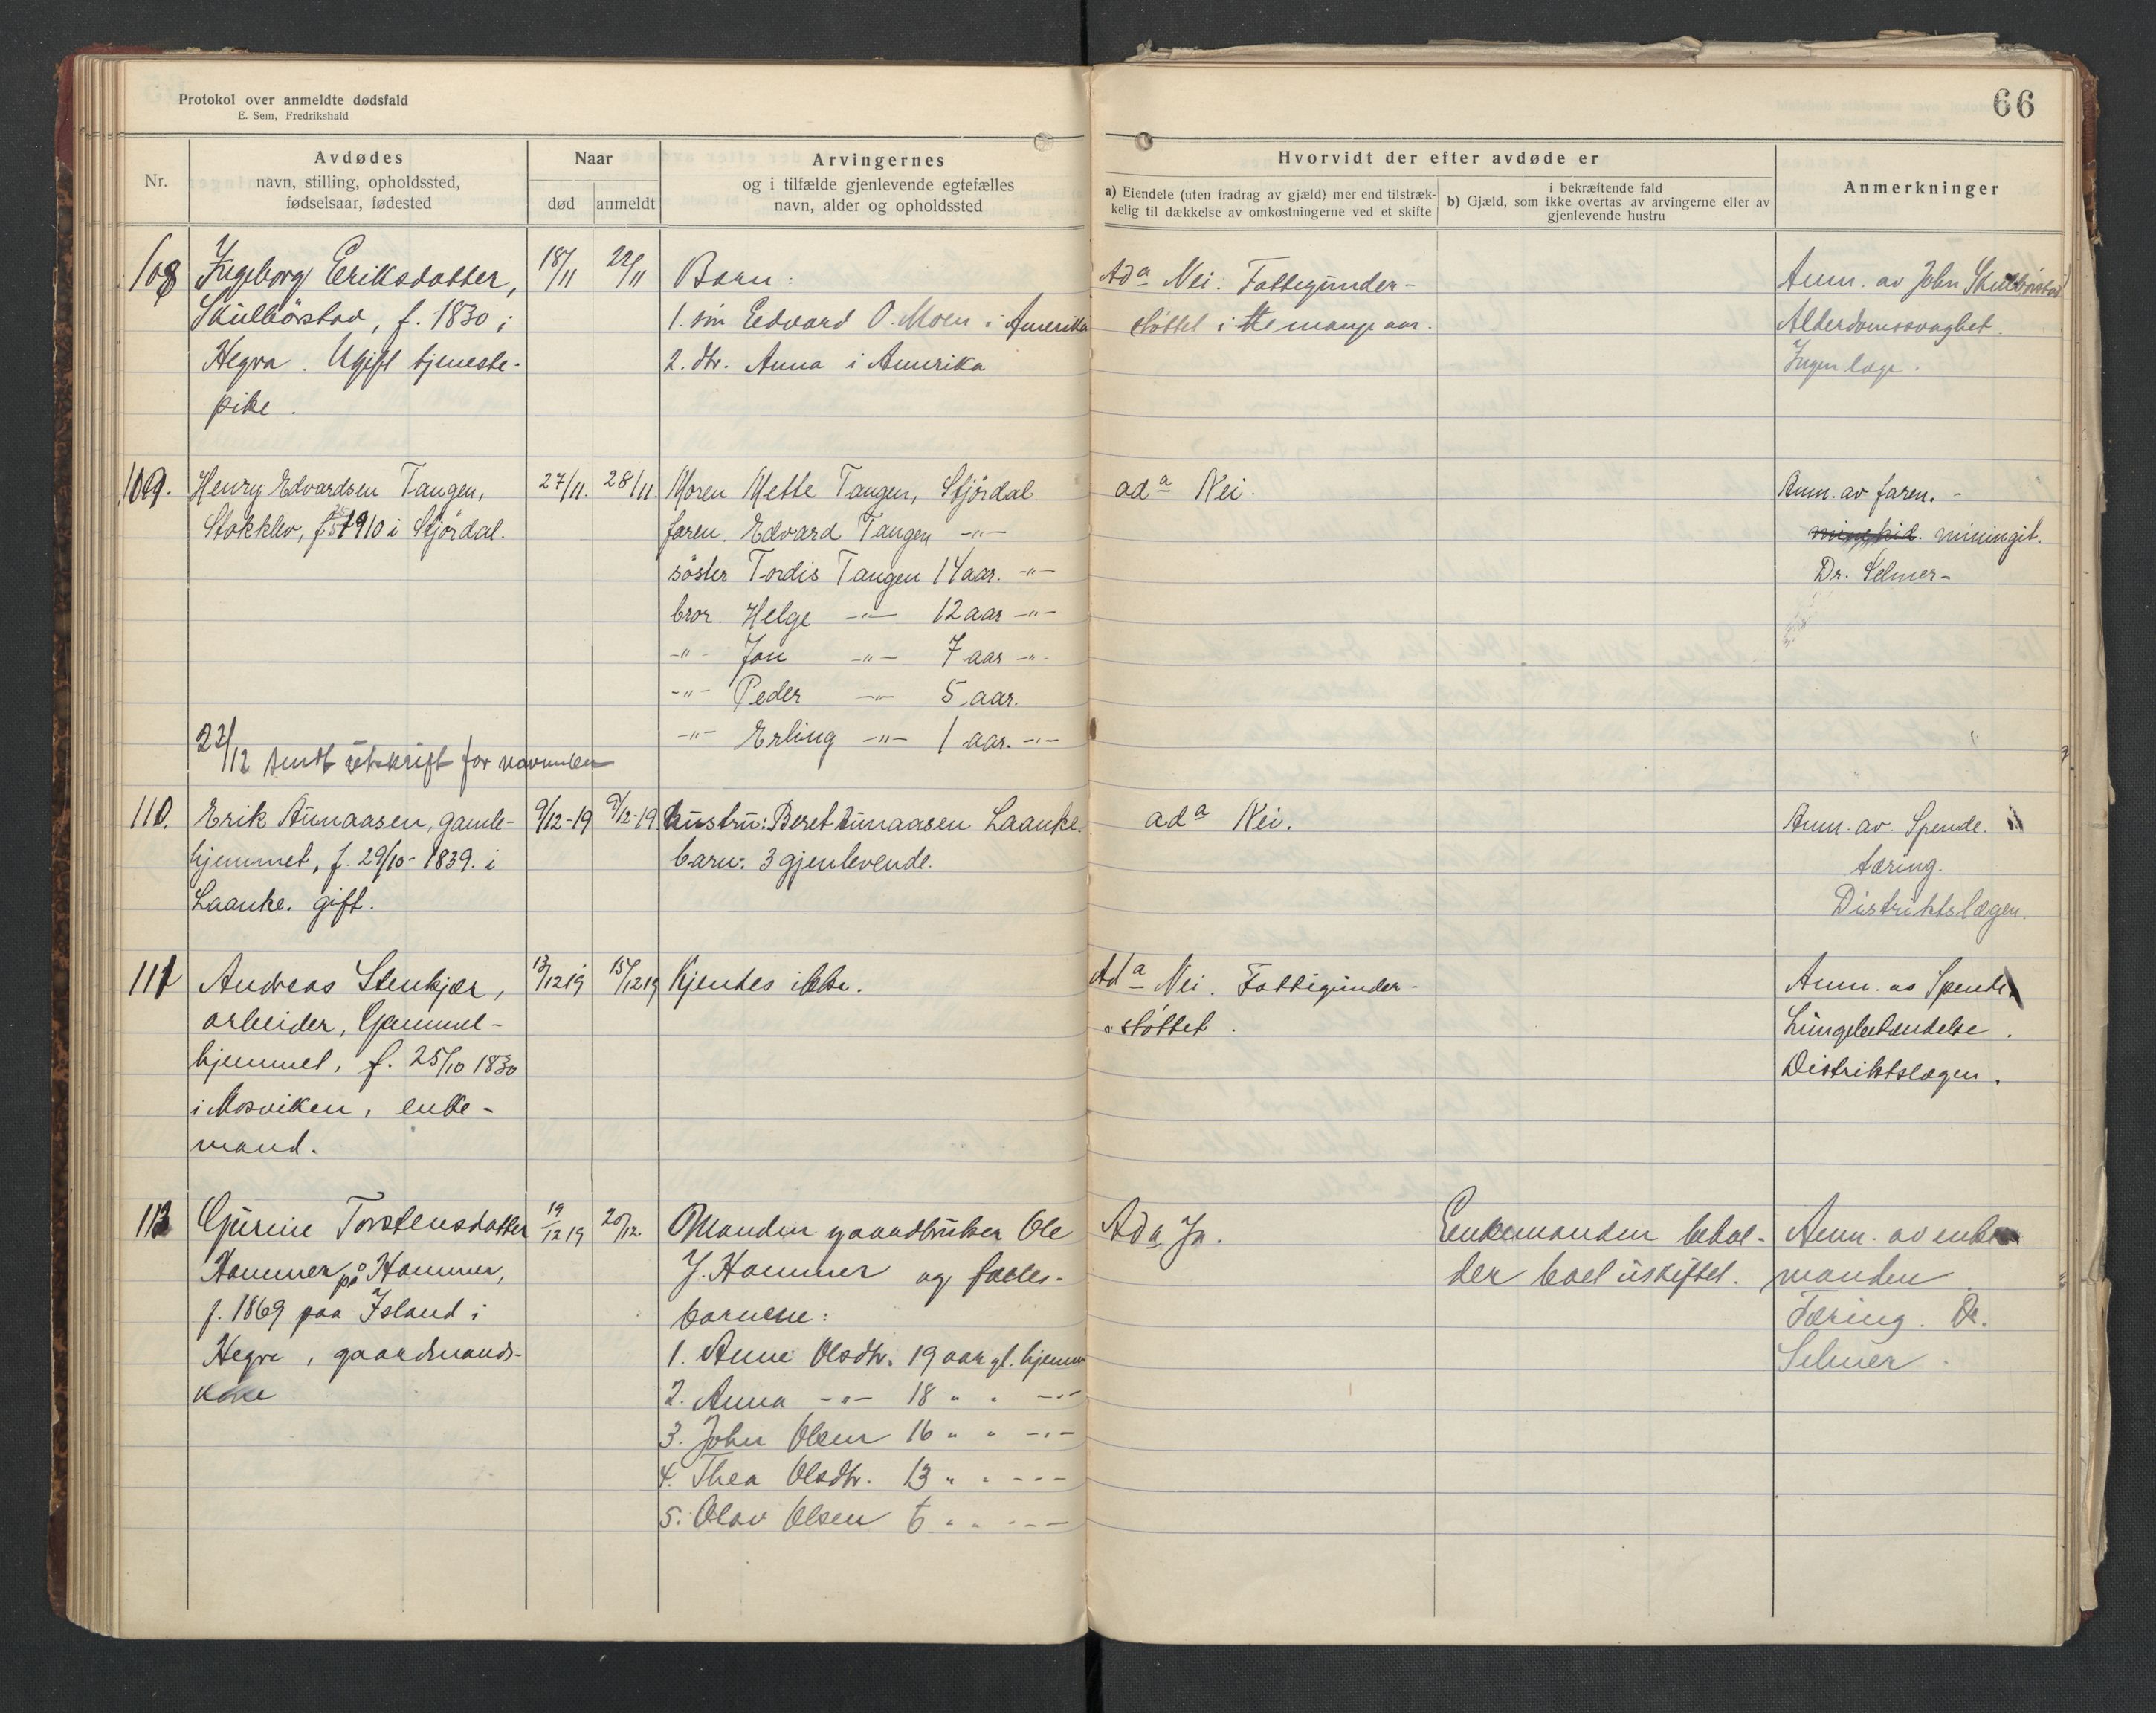 Protokol over anmeldte dødsfald
E. Sem, Fredrikshald
66
Nr.
Avdødes
navn, stilling, opholdssted,
fødselsaar, fødested
Naar
død
anmeldt
Arvingernes
og i tilfælde gjenlevende egtefælles
navn, alder og opholdssted
Hvorvidt der efter avdøde er
a) Eiendele (uten fradrag av gjæld) mer end tilstræk-
kelig til dækkelse av omkostningerne ved et skifte
i bekræftende fald
b) Gjæld, som ikke overtas av arvingerne eller av
gjenlevende hustru
Anmerkninger
108
Ingeborg Eriksdatter,
Skulbörstad, f. 1830 i
Hegra. Ugift tjeneste-
pike.
18/11
22/11
Barn:
1. sön Edvard O. Moen i Amerika
2. dtr. Anna i Amerika
Ad a Nei. Fattigunder-
støttet i mange aar.
Anm. av John Skulbörstad
Alderdomssvaghet.
Ingen læge.
109.
Henry Edvardsen Tangen,
Stokklev, f. 25/5 1910 i Stjördal.
27/11.
28/11.
Moren Mette Tangen, Stjördal.
faren. Edvard Tangen -"-
söster Tordis Tangen 14 aar. -"-
bror. Helge -"- 12 aar -"-
-"- Jon -"- 7 aar -"-
-"- Peder -"- 5 aar.
-"- Erling -"- 1 aar. -"-
ad a Nei.
Anm. av faren. -
miningit.
Dr. Selmer-
22/12 sendt utskrift for november
110.
Erik Aunaasen, gamle-
hjemmet, f. 29/10-1839. i
Laanke. gift.
9/12-19
9/12-19
hustru: Beret Aunaasen Laanke.
barn: 3 gjenlevende.
ad a Nei.
Anm. av. Spende.
tæring.
Distriktslægen.
111
Andreas Stenkjær,
arbeider, Gammel-
hjemmet, f. 25/10 1830
i Mosviken, enke-
mand.
13/12 19
15/12 19
Kjendes ikke.
Ad a Nei. Fattigunder-
støttet.
Anm. av Spende
Lungebetændelse.
Distriktslægen.
113
Gurine Torstensdatter
Hammer på Hammer,
f. 1869 paa Island i
Hegra, gaardmands-
kone
19/12 19
20/12.
Manden gaardbruker Ole
J. Hammer og fælles-
barnene:
1. Anne Olsdtr. 19 aar gl. hjemme
2. Anna -"- 18 " " -"-
3. John Olsen 16 " " -"-
4. Thea Olsdtr. 13 " " -"-
5. Olav Olsen 6 " " -"-
Ad a Ja.
Enkemanden behol-
der boet uskiftet.
Anm. av enke-
manden.
Tæring. Dr.
Selmer.